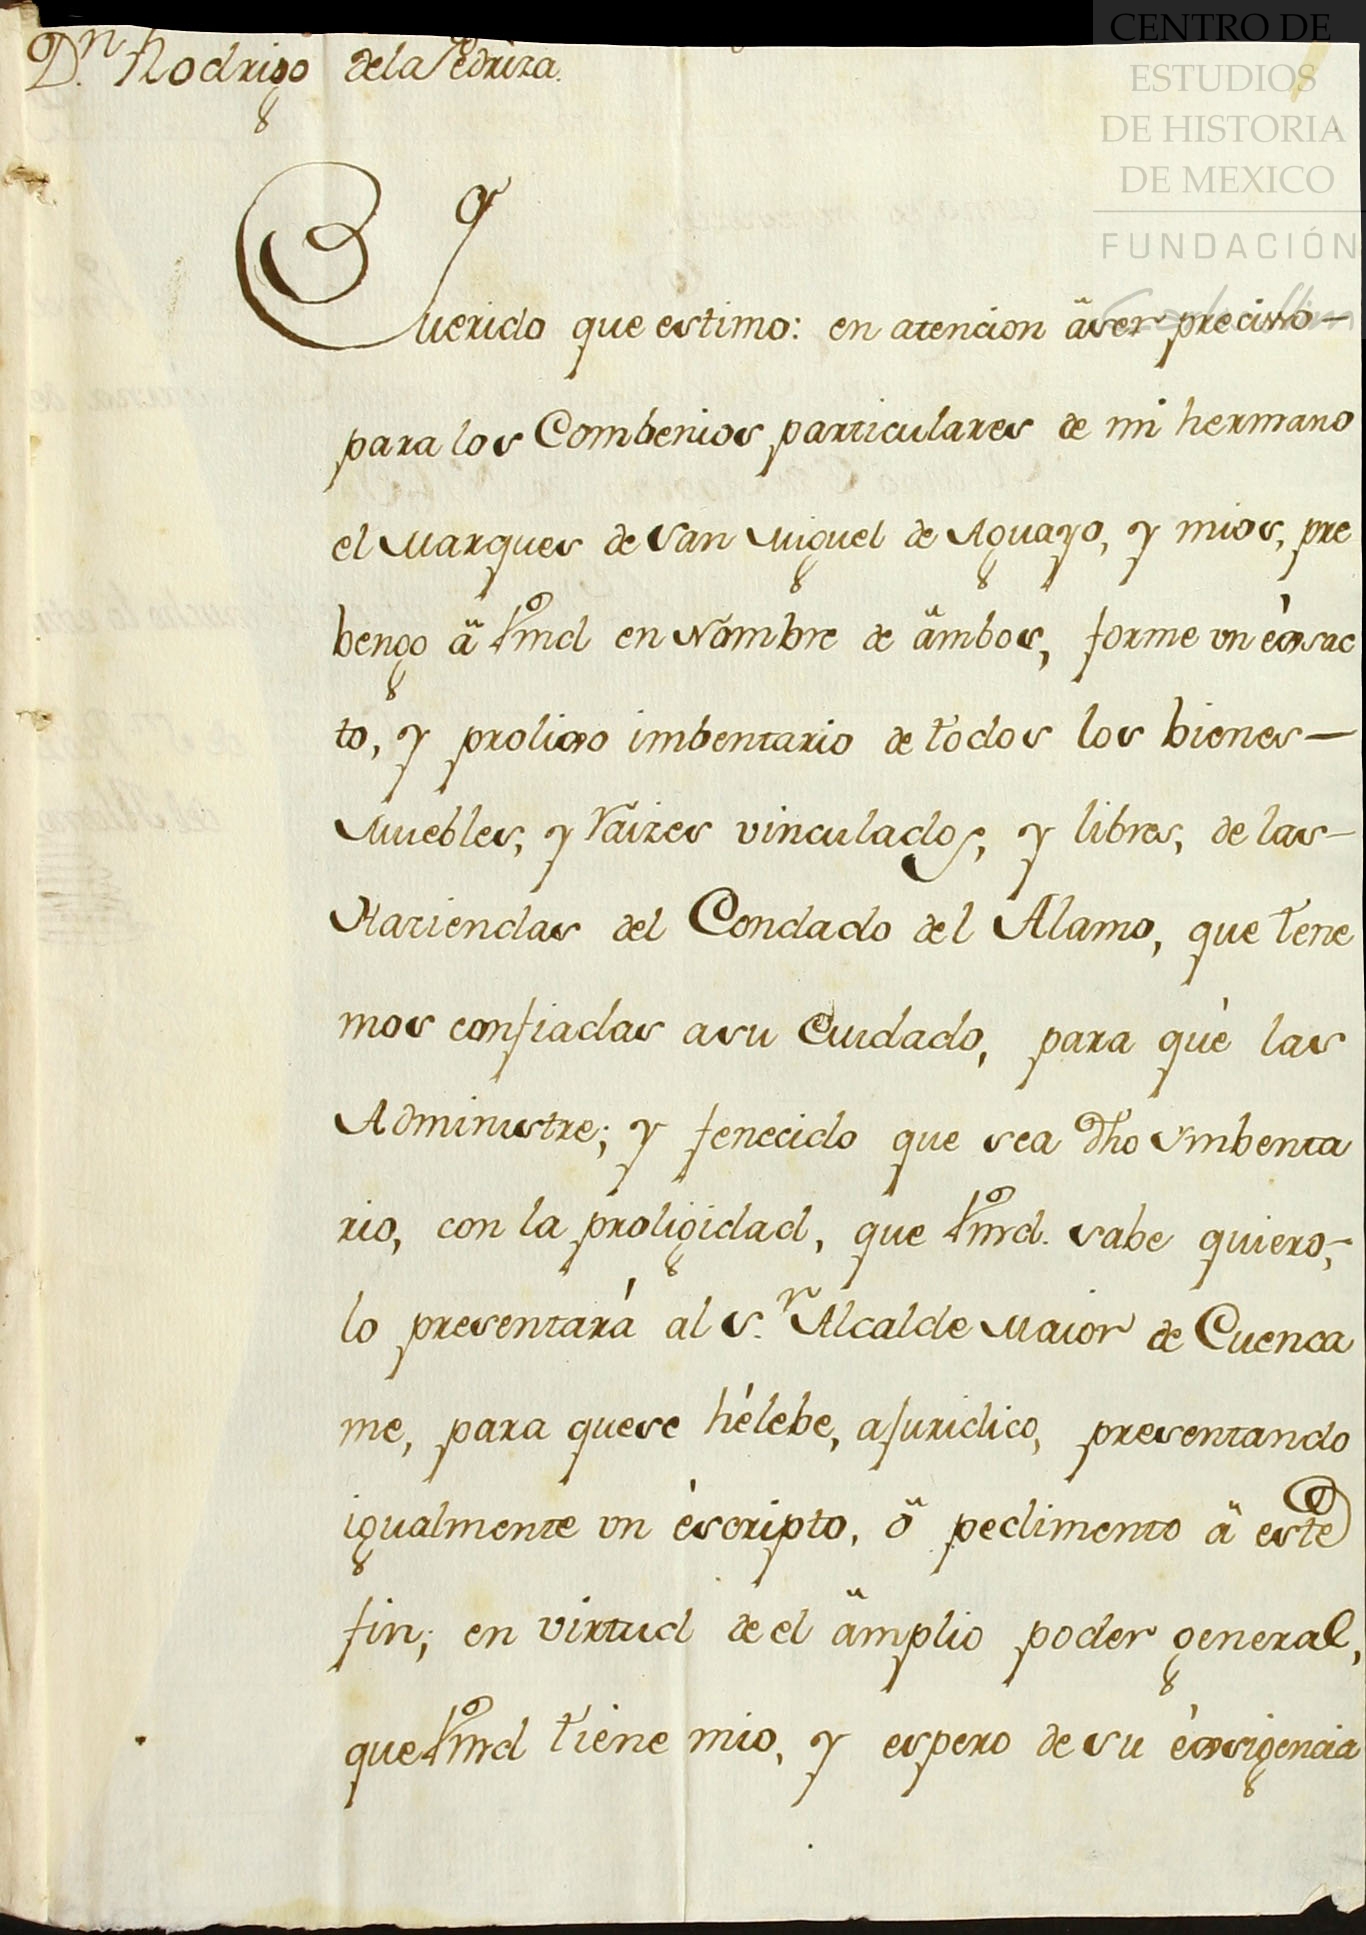 Dn. Rodrigo de la Pedriza.
CENTRO DE
ESTUDIOS
DE HISTORIA
DE MEXICO
FUNDACIÓN
Querido que estimo: en atencion â ser precisso—
para los Combenios particulares de mi hermano
el Marques de San Miguel de Aguayo, y mios, pre
bengo â Vmd en Nombre de âmbos, forme un éxsac
to, y prolixo imbentario de todos los bienes—
Muebles, y raizes vinculados, y libres, de las—
Haziendas del Condado del Alamo, que tene
mos confiadas a su Cuidado, para què las
Administre; y fenecido que sea dho Ymbenta
rio, con la proligidad, que Vmd. sabe quiero,—
lo presentará al Sr. Alcalde Maior de Cuenca
me, para que se hélebe, a Juridico, presentando
igualmente un éscripto, ô pedimento â este
fin; en virtud de el âmplio poder general,
que Vmd tiene mio, y espero de su éxsigencia